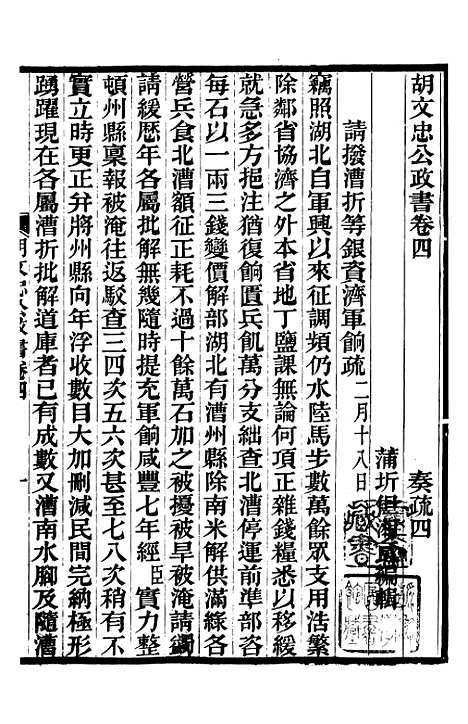 胡文忠公政書卷四
奏疏四
蒲圻但湘良編輯
請撥漕折等銀資濟軍餉疏 二月十八日
竊照湖北自軍興以來征調頻仍水陸馬步數萬餘眾支用浩繁
除鄰省協濟之外本省地丁鹽課無論何項正雜錢糧悉以移緩
就急多方挹注猶復餉匱兵飢萬分支絀查北漕停運前準部咨
每石以一兩三錢變價解部湖北有漕州縣除南米解供滿綠各
營兵食北漕額征正耗不過十餘萬石加之被擾被旱被淹請蠲
請緩歷年各屬批解無幾隨時提充軍餉咸豐七年經臣實力整
頓州縣稟報被淹往返駁查三四次五六次甚至七八次稍有不
實立時更正弁將州縣向年浮收數目大加刪減民間完納極形
踴躍現在各屬漕折批解道庫者已有成數又漕南水腳及隨漕
胡文忠公政書卷四
一
藏書